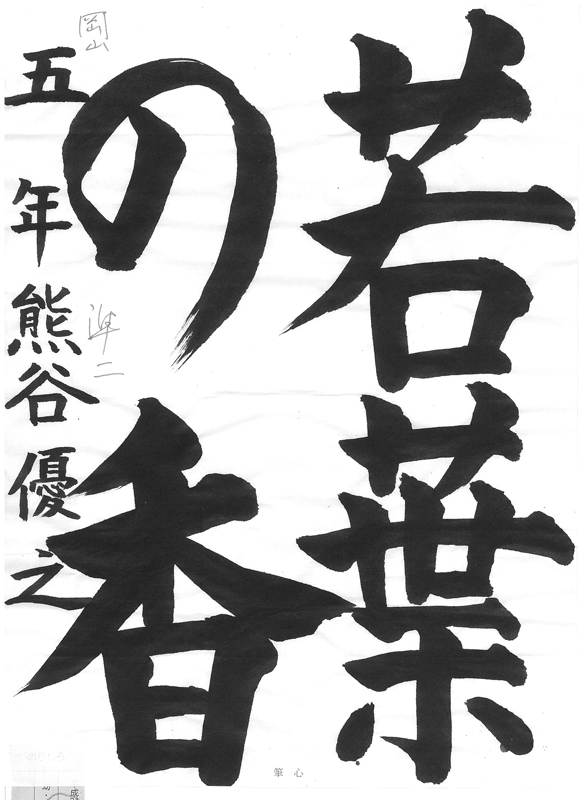 若葉
の香
岡山
五年 熊谷優之
準二
筆心
のりしろ